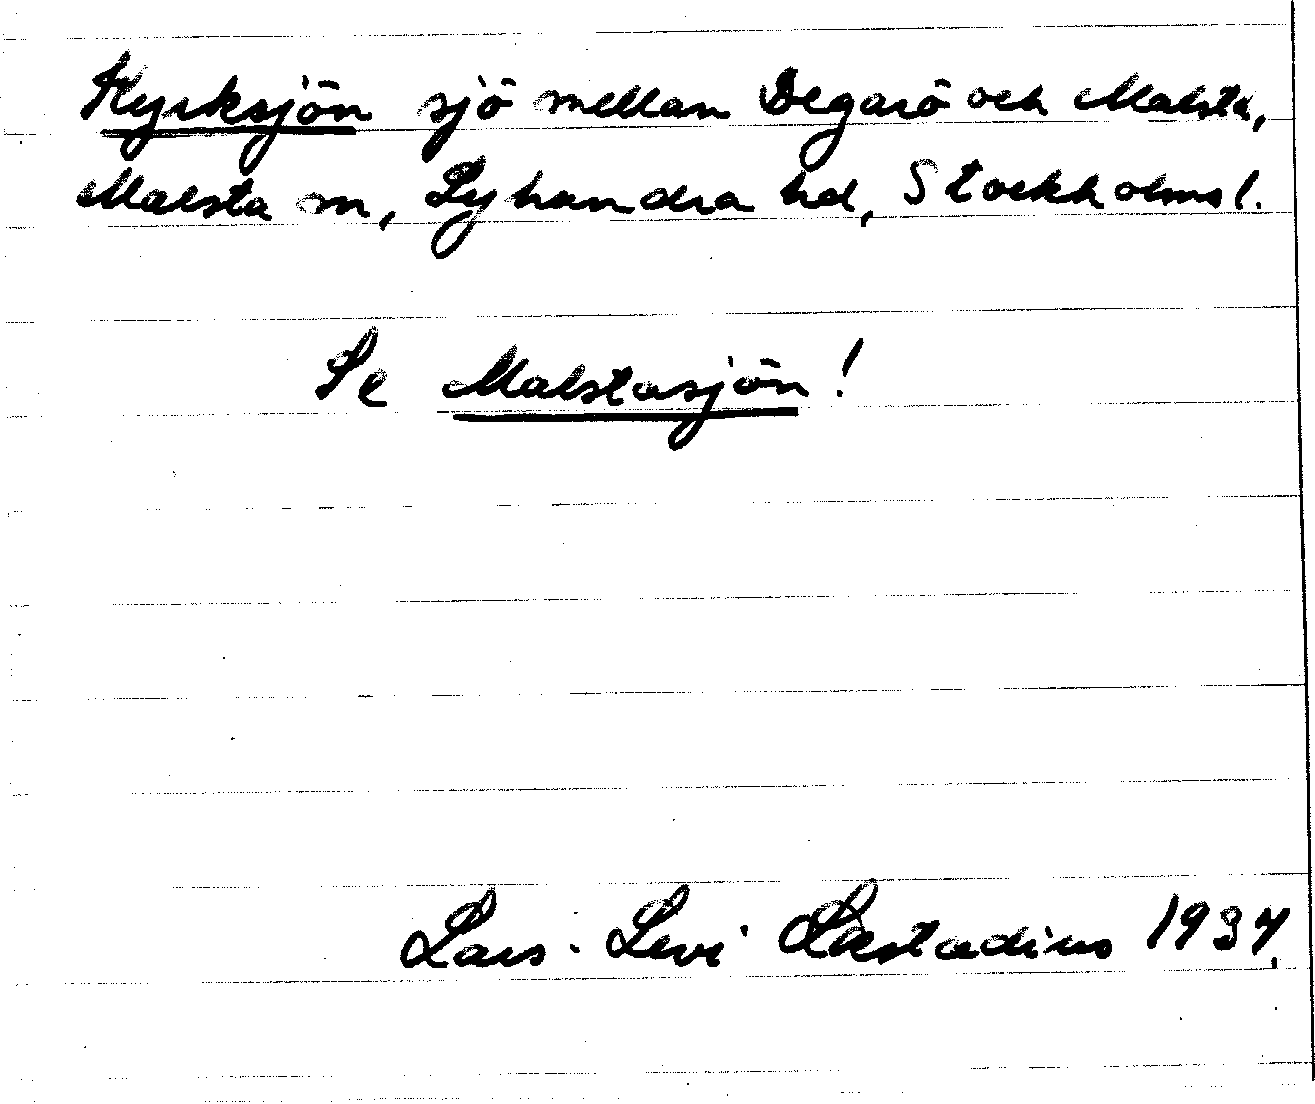 Kyrksjön sjö mellan Degarö och Malsta,
Malsta sn, Lyhundra hd, Stockholms l.
Se Malstasjön!
Lars-Levi Læstadius 1934.